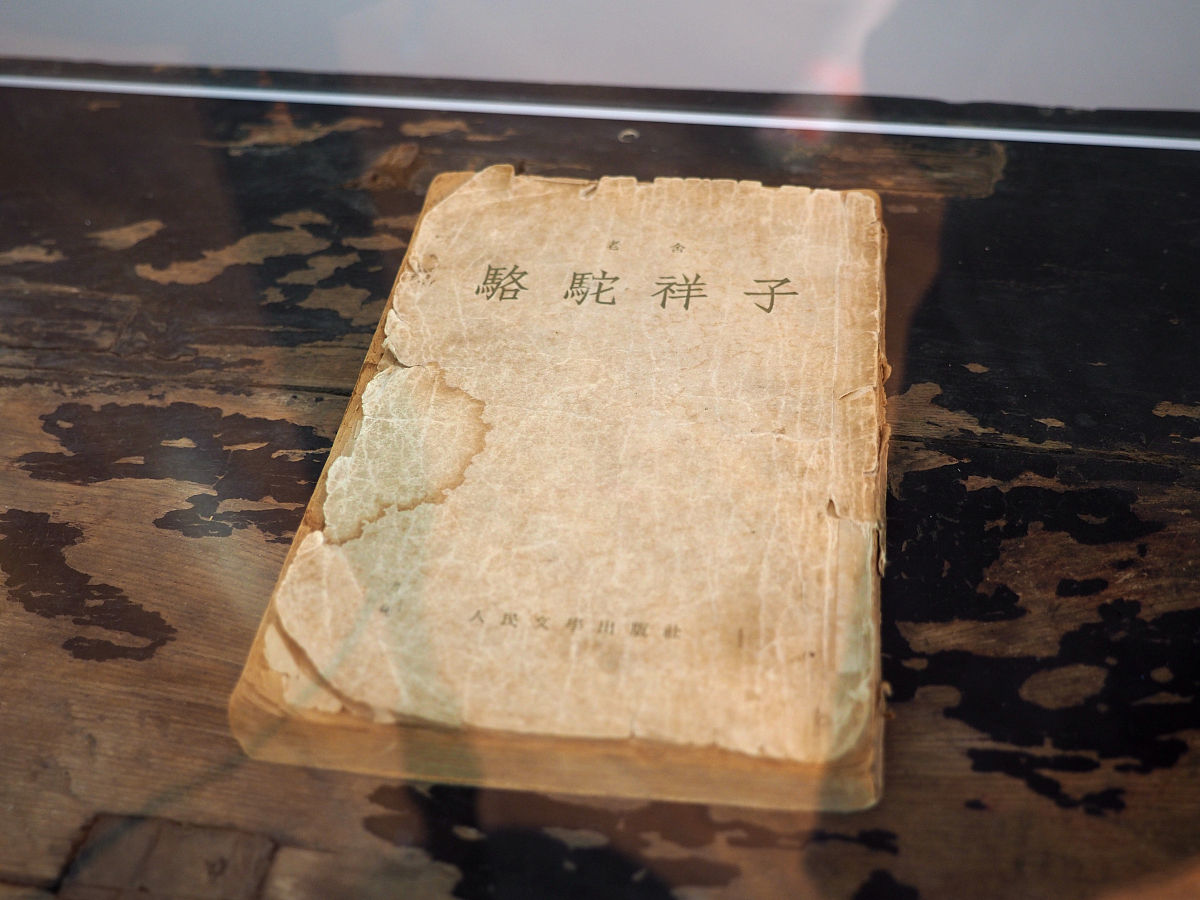 老舍
駱駝祥子
人民文學出版社